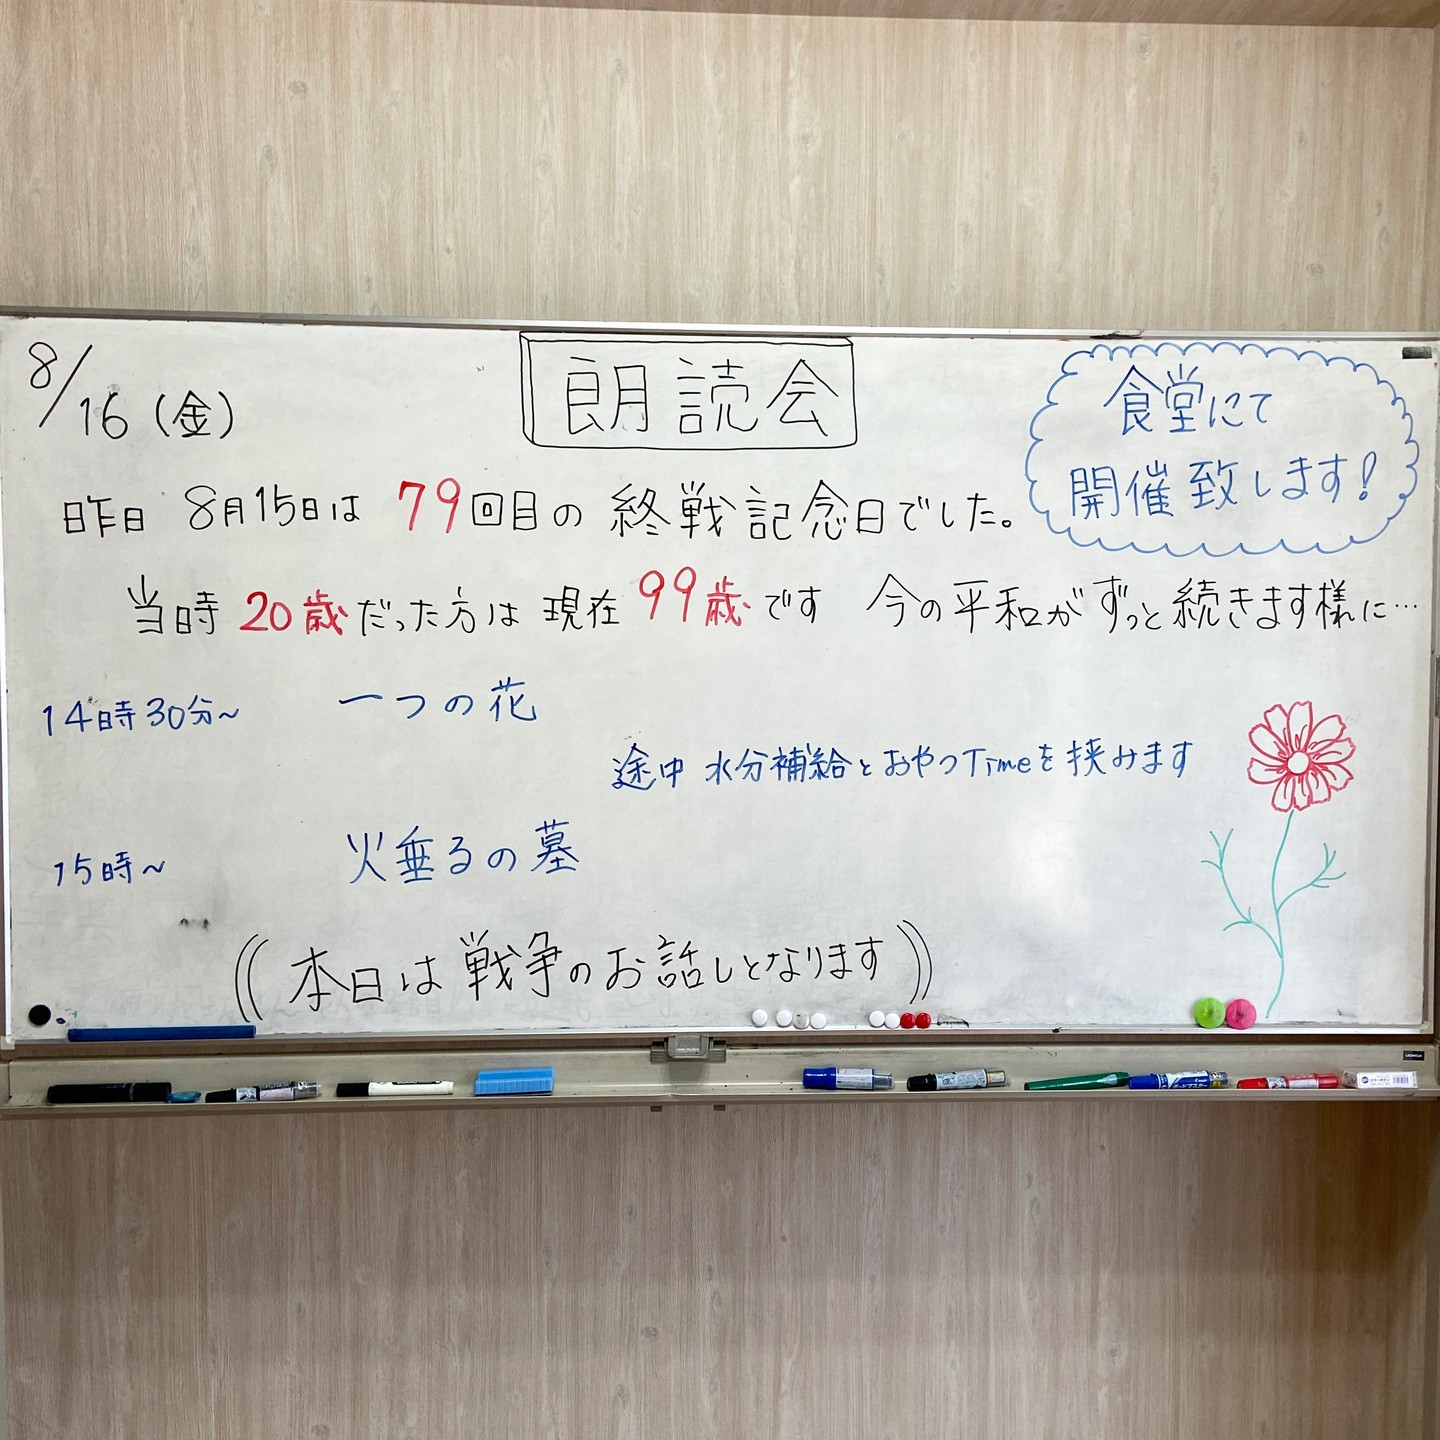 8/16(金)
朗読会
食堂にて
開催致します!
昨日 8月15日は 79回目の 終戦記念日でした。
当時 20歳だった方は 現在 99歳です 今の平和がずっと続きます様に…
14時30分~ 一つの花
途中 水分補給とおやつTimeを挟みます
15時~ 火垂るの墓
((本日は戦争のお話しとなります))